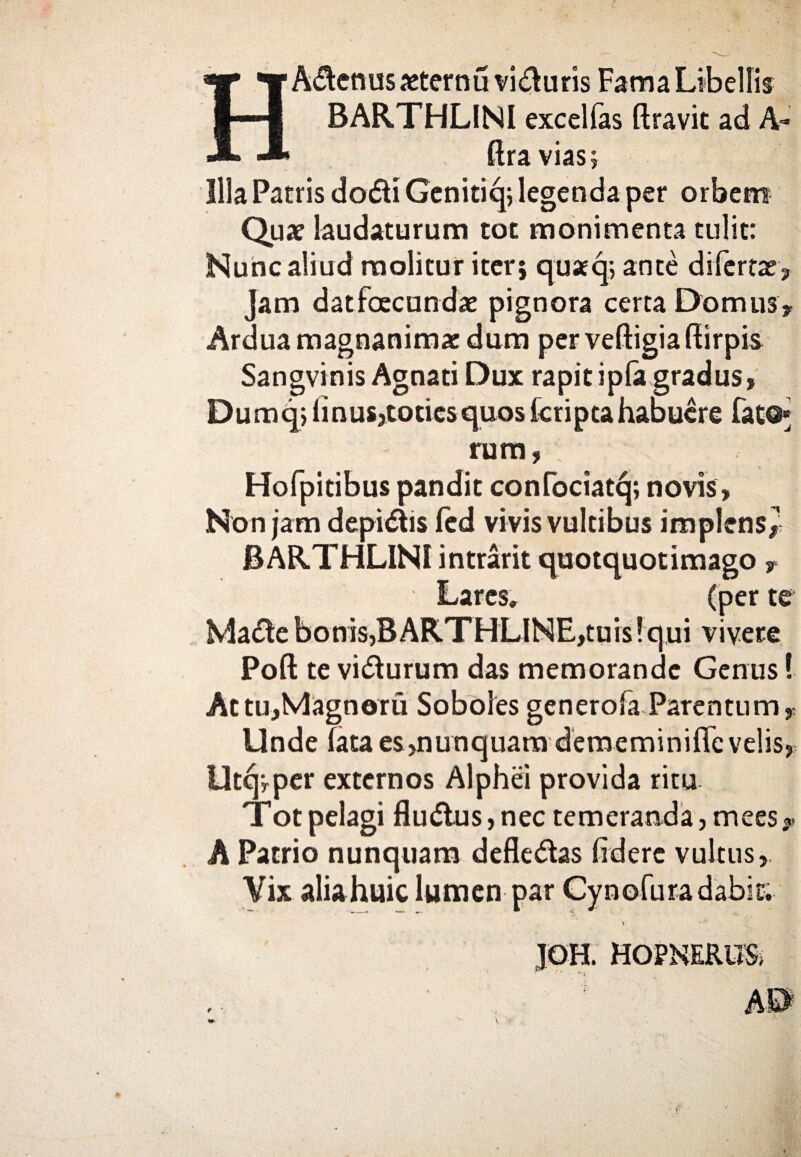 HActenus æternũ victuris Fama Libellis
BARTHLINI excelſas ſtravit ad A-
ſtra vias;
Illa Patris docti Genitiq; legenda per orbem
Quæ laudaturum tot monimenta tulit:
Nunc aliud molitur iter; quæq; antè diſertæ,
Jam dat fœcundæ pignora certa Domus,
Ardua magnanimæ dum per veſtigia ſtirpis
Sangvinis Agnati Dux rapit ipſa gradus,
Dumq; ſinus, toties quos ſcripta habuêre fato-
rum,
Hoſpitibus pandit conſociatq; novis,
Non jam depictis ſed vivis vultibus implens,
BARTHLINI intrârit quotquot imago,
Lares. (per te
Macte bonis, BARTHLINE, tuis! qui vivere
Poſt te victurum das memorande Genus!
At tu, Magnorũ Soboles generoſa Parentum,
Unde ſata es, nunquam dememiniſſe velis,
Utq; per externos Alphëi provida ritu
Tot pelagi fluctus, nec temeranda, mees,
A Patrio nunquam deflectas ſidere vultus,
Vix alia huic lumen par Cynoſura dabit.
JOH. HOPNERUS,
AD